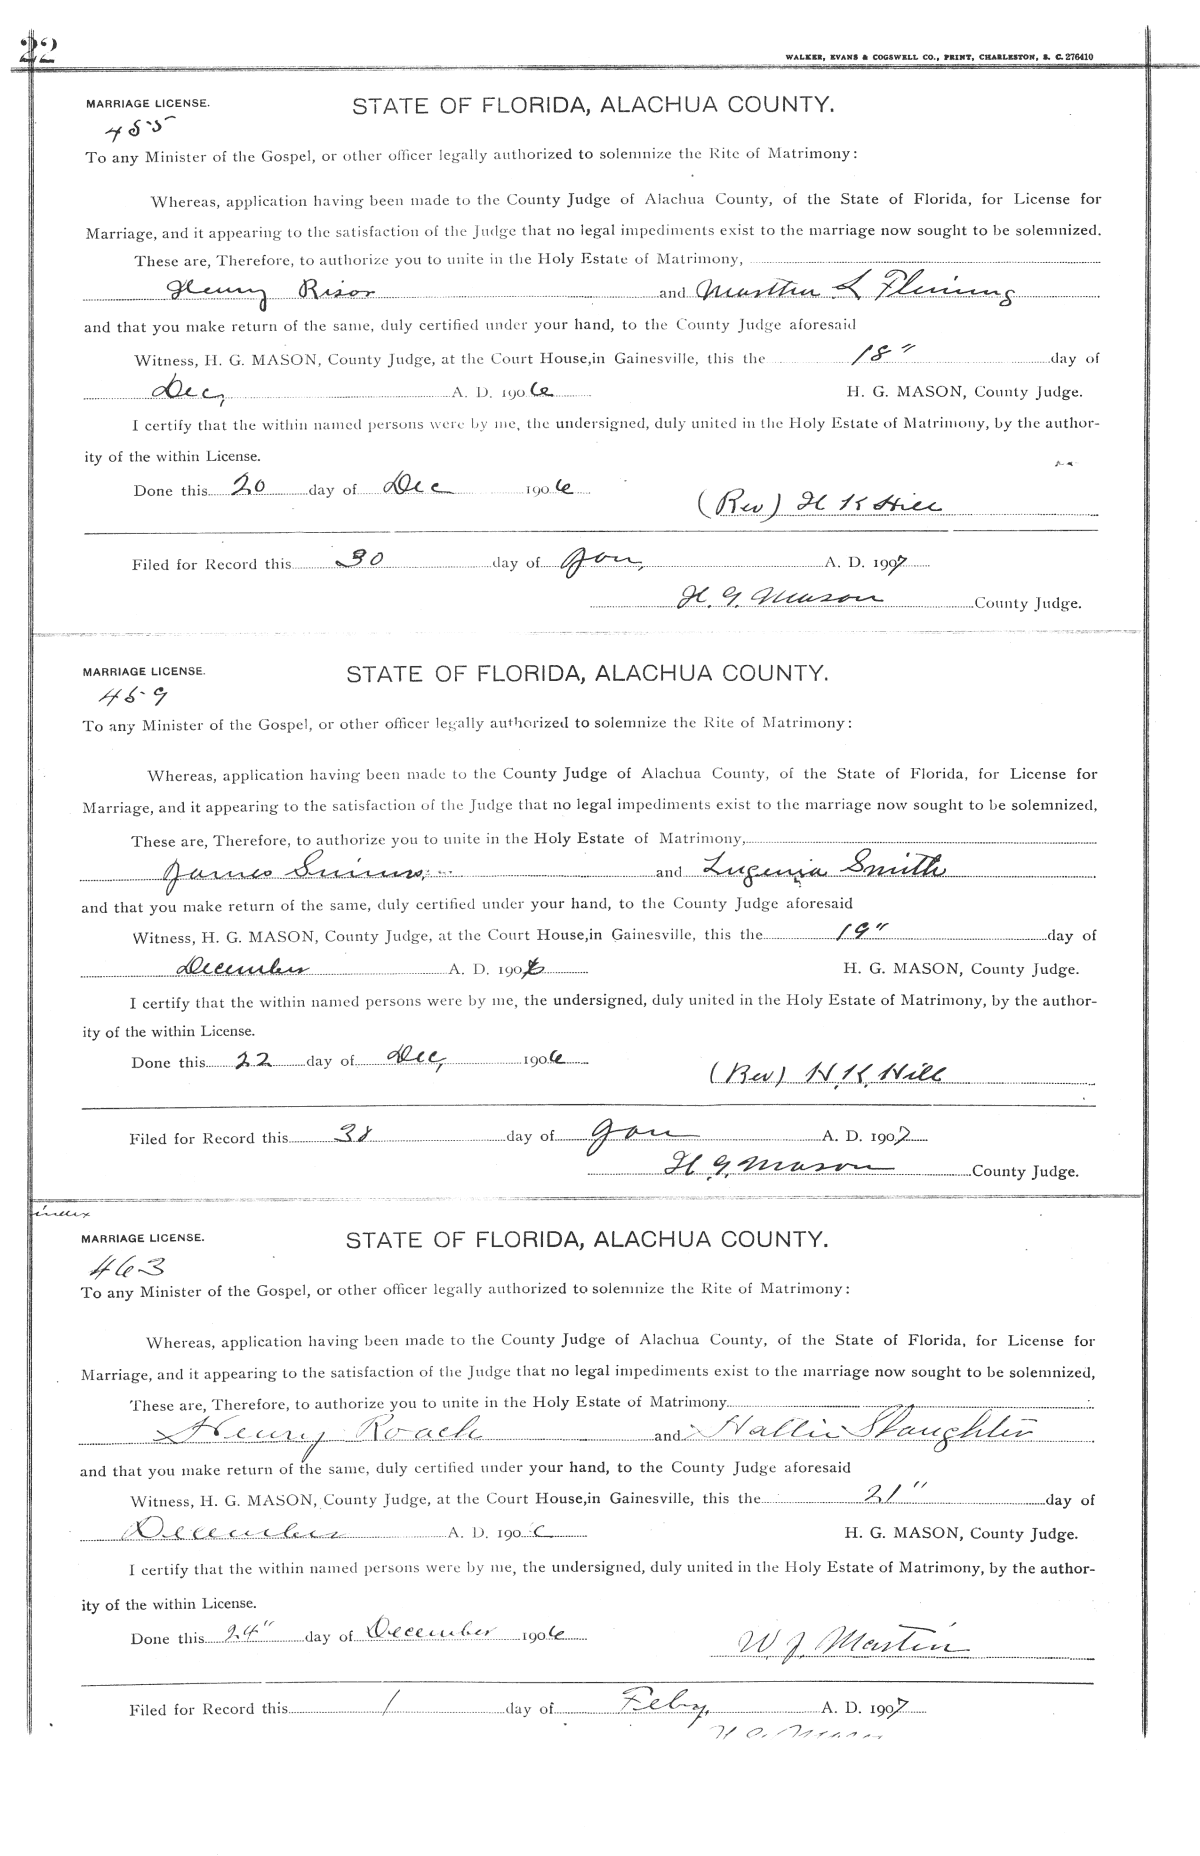 22
WALKER, EVANS & COGSWELL CO., PRINT, CHARLESTON, S. C. 276410
MARRIAGE LICENSE. STATE OF FLORIDA, ALACHUA COUNTY.
455
To any Minister of the Gospel, or other officer legally authorized to solemnize the Rite of Matrimony:
Whereas, application having been made to the County Judge of Alachua County, of the State of Florida, for License for
Marriage, and it appearing to the satisfaction of the Judge that no legal impediments exist to the marriage now sought to be solemnized.
These are, Therefore, to authorize you to unite in the Holy Estate of Matrimony,
Henry Risor and Martha L Fleming
and that you make return of the same, duly certified under your hand, to the County Judge aforesaid
Witness, H. G. MASON, County Judge, at the Court House, in Gainesville, this the 18" day of
Dec, A. D. 1906 H. G. MASON, County Judge.
I certify that the within named persons were by me, the undersigned, duly united in the Holy Estate of Matrimony, by the author-
ity of the within License.
Done this 20 day of Dec 1906
(Rev) H K Hill
Filed for Record this 30 day of Jan, A. D. 1907
H. G. Mason County Judge.
MARRIAGE LICENSE. STATE OF FLORIDA, ALACHUA COUNTY.
459
To any Minister of the Gospel, or other officer legally authorized to solemnize the Rite of Matrimony:
Whereas, application having been made to the County Judge of Alachua County, of the State of Florida, for License for
Marriage, and it appearing to the satisfaction of the Judge that no legal impediments exist to the marriage now sought to be solemnized,
These are, Therefore, to authorize you to unite in the Holy Estate of Matrimony,
James Simms, and Lugenia Smith
and that you make return of the same, duly certified under your hand, to the County Judge aforesaid
Witness, H. G. MASON, County Judge, at the Court House, in Gainesville, this the 19" day of
December A. D. 1906 H. G. MASON, County Judge.
I certify that the within named persons were by me, the undersigned, duly united in the Holy Estate of Matrimony, by the author-
ity of the within License.
Done this 22 day of Dec, 1906
(Rev) H. K. Hill
Filed for Record this day of Jan A. D. 1907
H. G. Mason County Judge.
index
MARRIAGE LICENSE. STATE OF FLORIDA, ALACHUA COUNTY.
463
To any Minister of the Gospel, or other officer legally authorized to solemnize the Rite of Matrimony:
Whereas, application having been made to the County Judge of Alachua County, of the State of Florida, for License for
Marriage, and it appearing to the satisfaction of the Judge that no legal impediments exist to the marriage now sought to be solemnized,
These are, Therefore, to authorize you to unite in the Holy Estate of Matrimony
Henry Roach and Hallie Slaughter
and that you make return of the same, duly certified under your hand, to the County Judge aforesaid
Witness, H. G. MASON, County Judge, at the Court House, in Gainesville, this the 21" day of
December A. D. 1906 H. G. MASON, County Judge.
I certify that the within named persons were by me, the undersigned, duly united in the Holy Estate of Matrimony, by the author-
ity of the within License.
Done this 24" day of December 1906
W. J. Martin
Filed for Record this 1 day of Feby, A. D. 1907